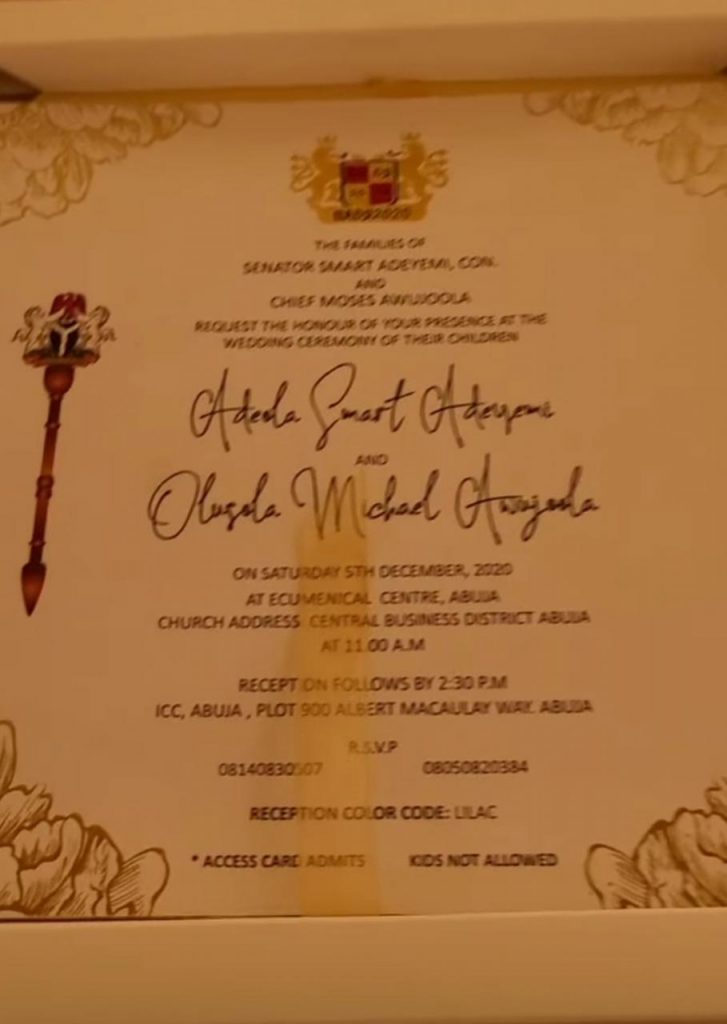 THE FAMILIES OF
SENATOR SMART ADEYEMI, CON.
AND
CHIEF MOSES AWUJOOLA
REQUEST THE HONOUR OF YOUR PRESENCE AT THE
WEDDING CEREMONY OF THEIR CHILDREN
Adeola Smart Adeyemi
AND
Olugola Michael Awujoola
ON SATURDAY 5TH DECEMBER, 2020
AT ECUMENICAL CENTRE, ABUJA
CHURCH ADDRESS CENTRAL BUSINESS DISTRICT ABUJA
AT 11.00 A.M
RECEPTION FOLLOWS BY 2:30 P.M
ICC, ABUJA , PLOT 900 ALBERT MACAULAY WAY. ABUJA
R.S.V.P
08140830507 08050820384
RECEPTION COLOR CODE: LILAC
* ACCESS CARD ADMITS KIDS NOT ALLOWED